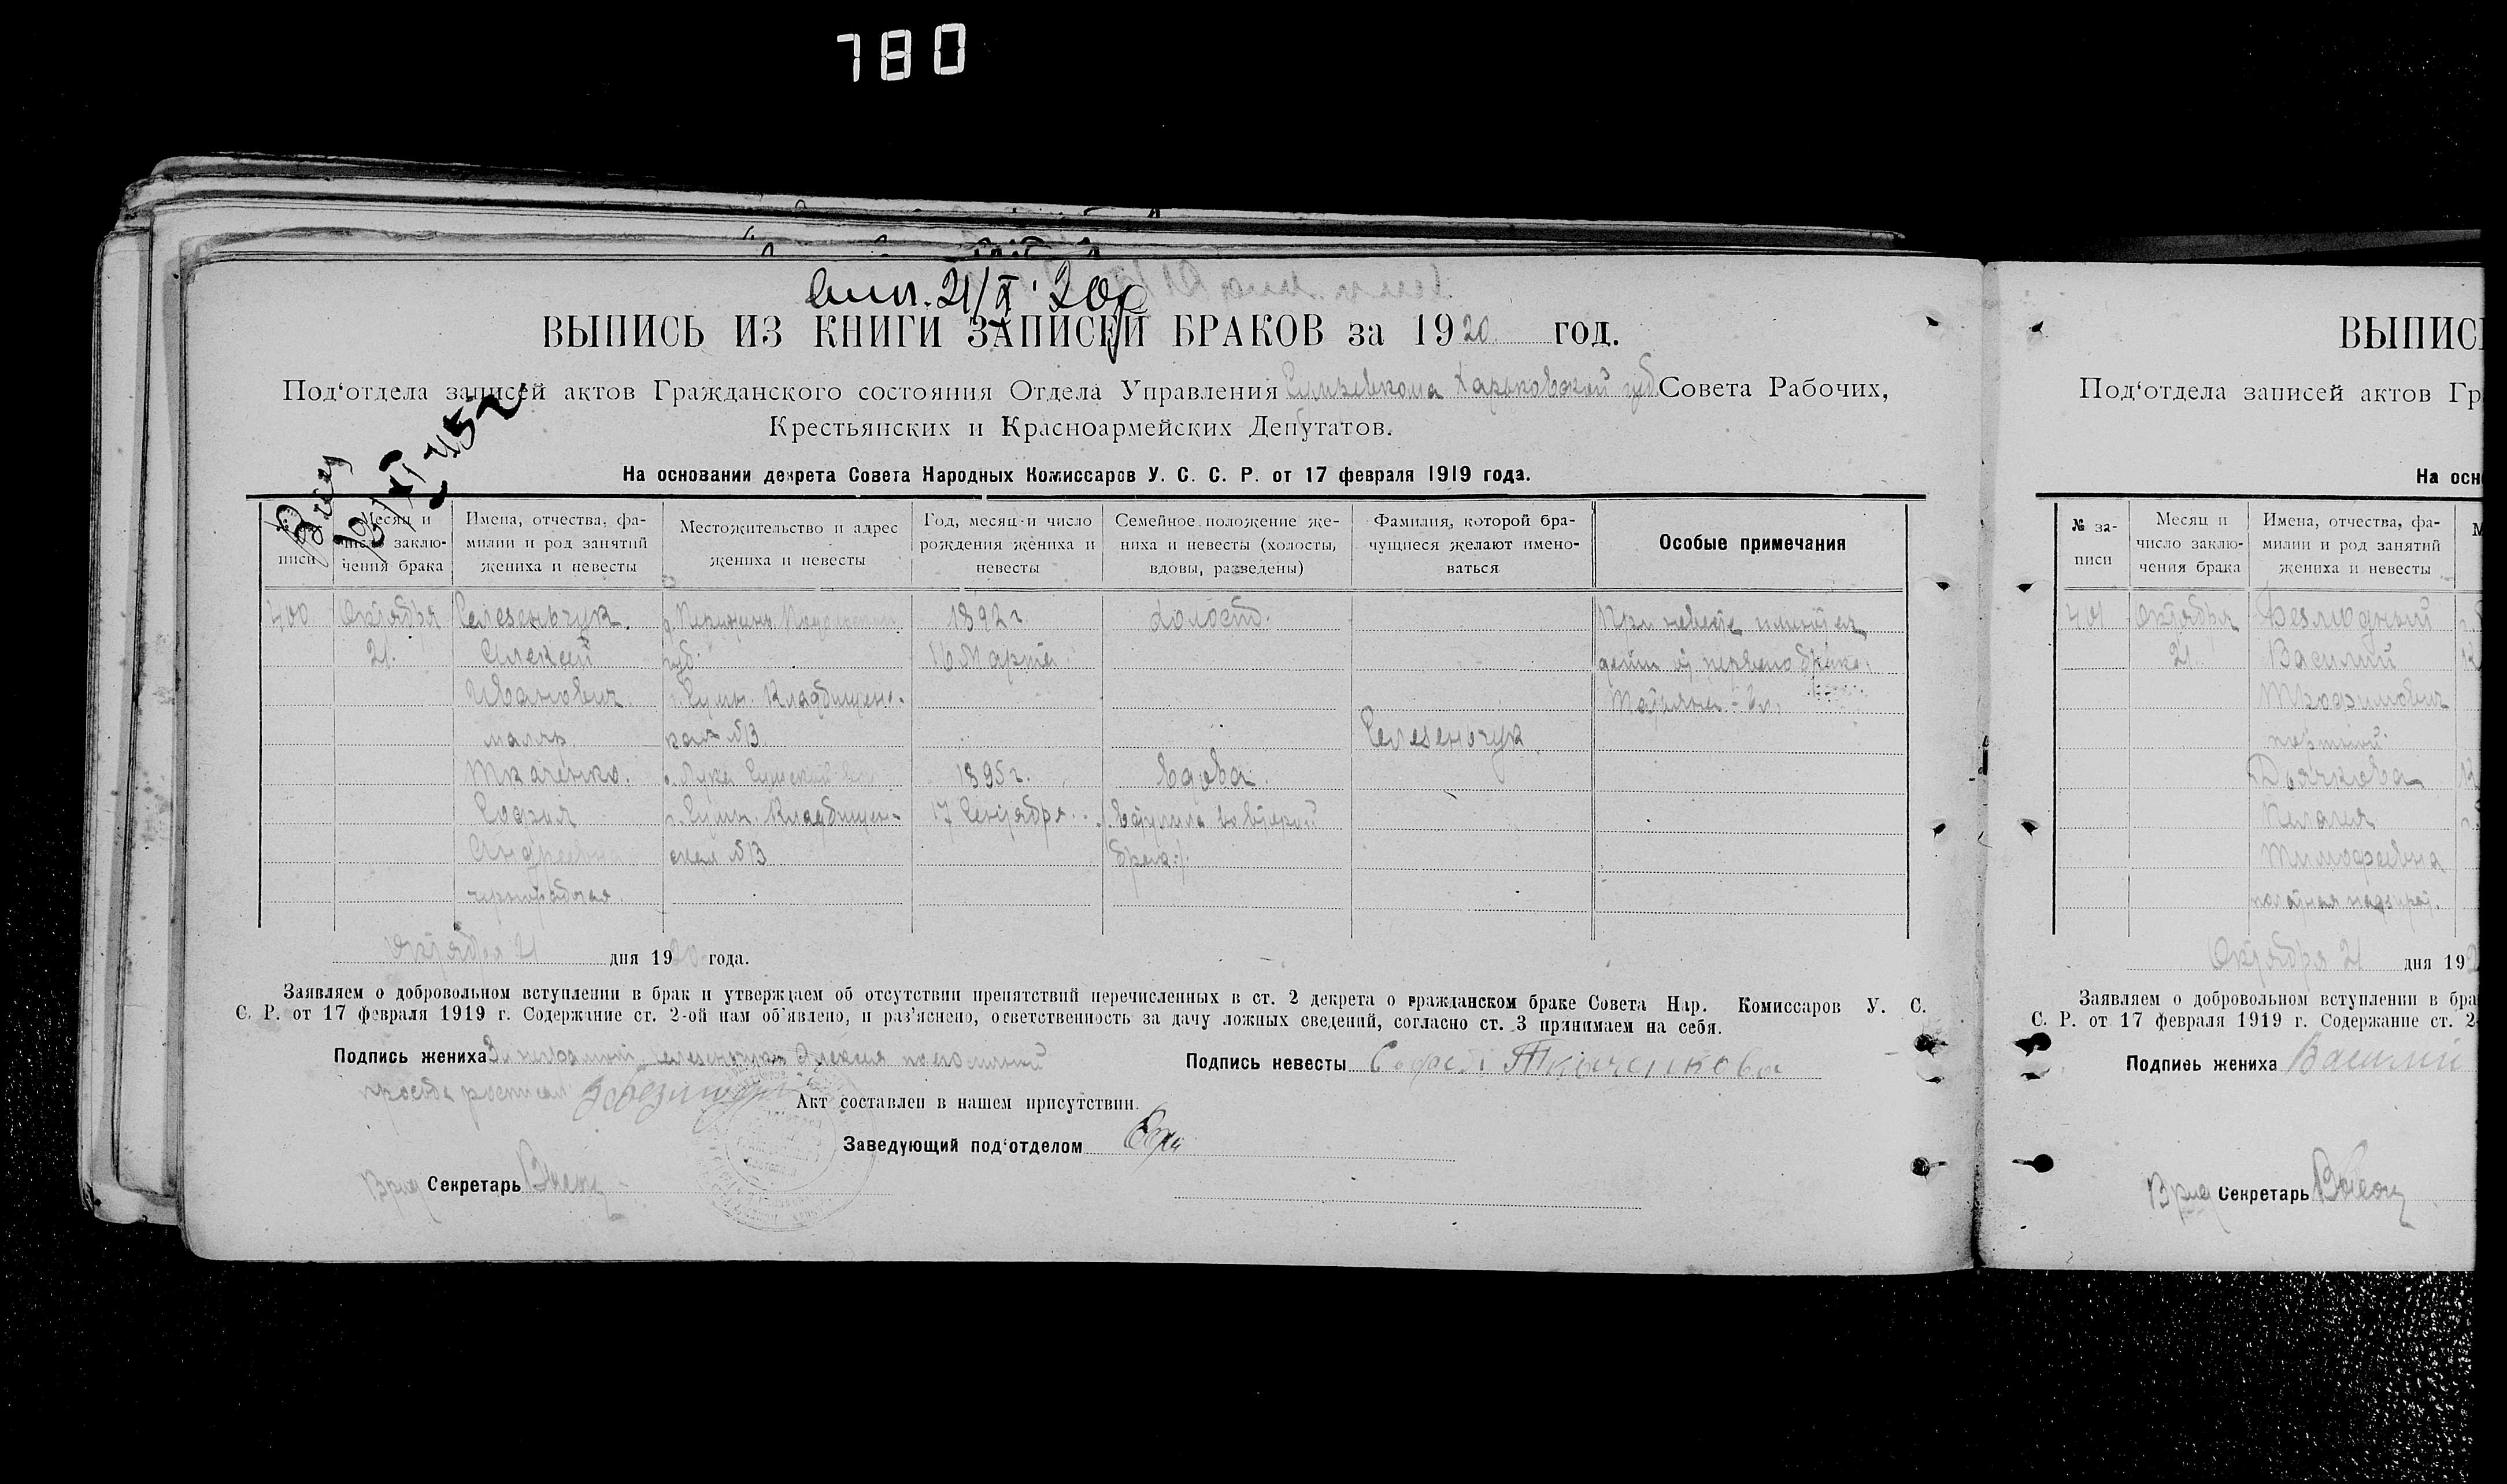 780
вып. 21/X 20г
ВЫПИСЬ ИЗ КНИГИ ЗАПИСЕЙ БРАКОВ за 1920 год.
Под‘отдела записей актов Гражданского состояния Отдела Управления Сумревкома Харьковской губ Совета Рабочих,
Крестьянских и Красноармейских Депутатов.
На основании декрета Совета Народных Комиссаров У. С. С. Р. от 17 февраля 1919 года.
писи
Месяц и число заклю-чения брака
Имена, отчества, фа-милии и род занятий жениха и невесты
Местожительство и адрес жениха и невесты
Год, месяц и число рождения жениха и невесты
Семейное положение же-ниха и невесты (холосты, вдовы, разведены)
Фамилия, которой бра-чущиеся желают имено-ваться
Особые примечания
400 Октября Селезеньчук. 1892 г. Холост. При невесте
21. Алексей губ. 16 Марта дети от первого брака:
Иванович г. Сумы. Кладбищенс-
маляр. кая №13 Селезеньчук
Ткаченко. с. Лука Сумской 1895 г. Вдова.
София г. Сумы. Кладбищен- 17 Сентября. Вступила во второй
Андреевна ская №13 брак
чернорабочая.
Октября 21 дня 1920 года.
Заявляем о добровольном вступлении в брак и утверждаем об отсутствии препятствий перечисленных в ст. 2 декрета о гражданском браке Совета Нар. Комиссаров У. С.
С. Р. от 17 февраля 1919 г. Содержание ст. 2-ой нам об‘явлено, и раз‘яснено, ответственность за дачу ложных сведений, согласно ст. 3 принимаем на себя.
Подпись жениха За неграмотный Селезеньчук Алексея по его личной
просьбе росписал
Подпись невесты София Ткаченкова
Акт составлен в нашем присутствии.
Заведующий под‘отделом
Врид Секретарь
ВЫПИС
Под‘отдела записей актов Гр
На осн
№ за-писи
Месяц и число заклю-чения брака
Имена, отчества, фа-милии и род занятий жениха и невесты
401 Октября Безлюдный
21 Василий
Трофимович
портной.
Дьячкова
Пелагея
Тимофеевна
палатная надзират.
Октября 21 дня 192
Заявляем о добровольном вступлении в бра
С. Р. от 17 февраля 1919 г. Содержание ст. 2
Подпись жениха Василий
Врид Секретарь